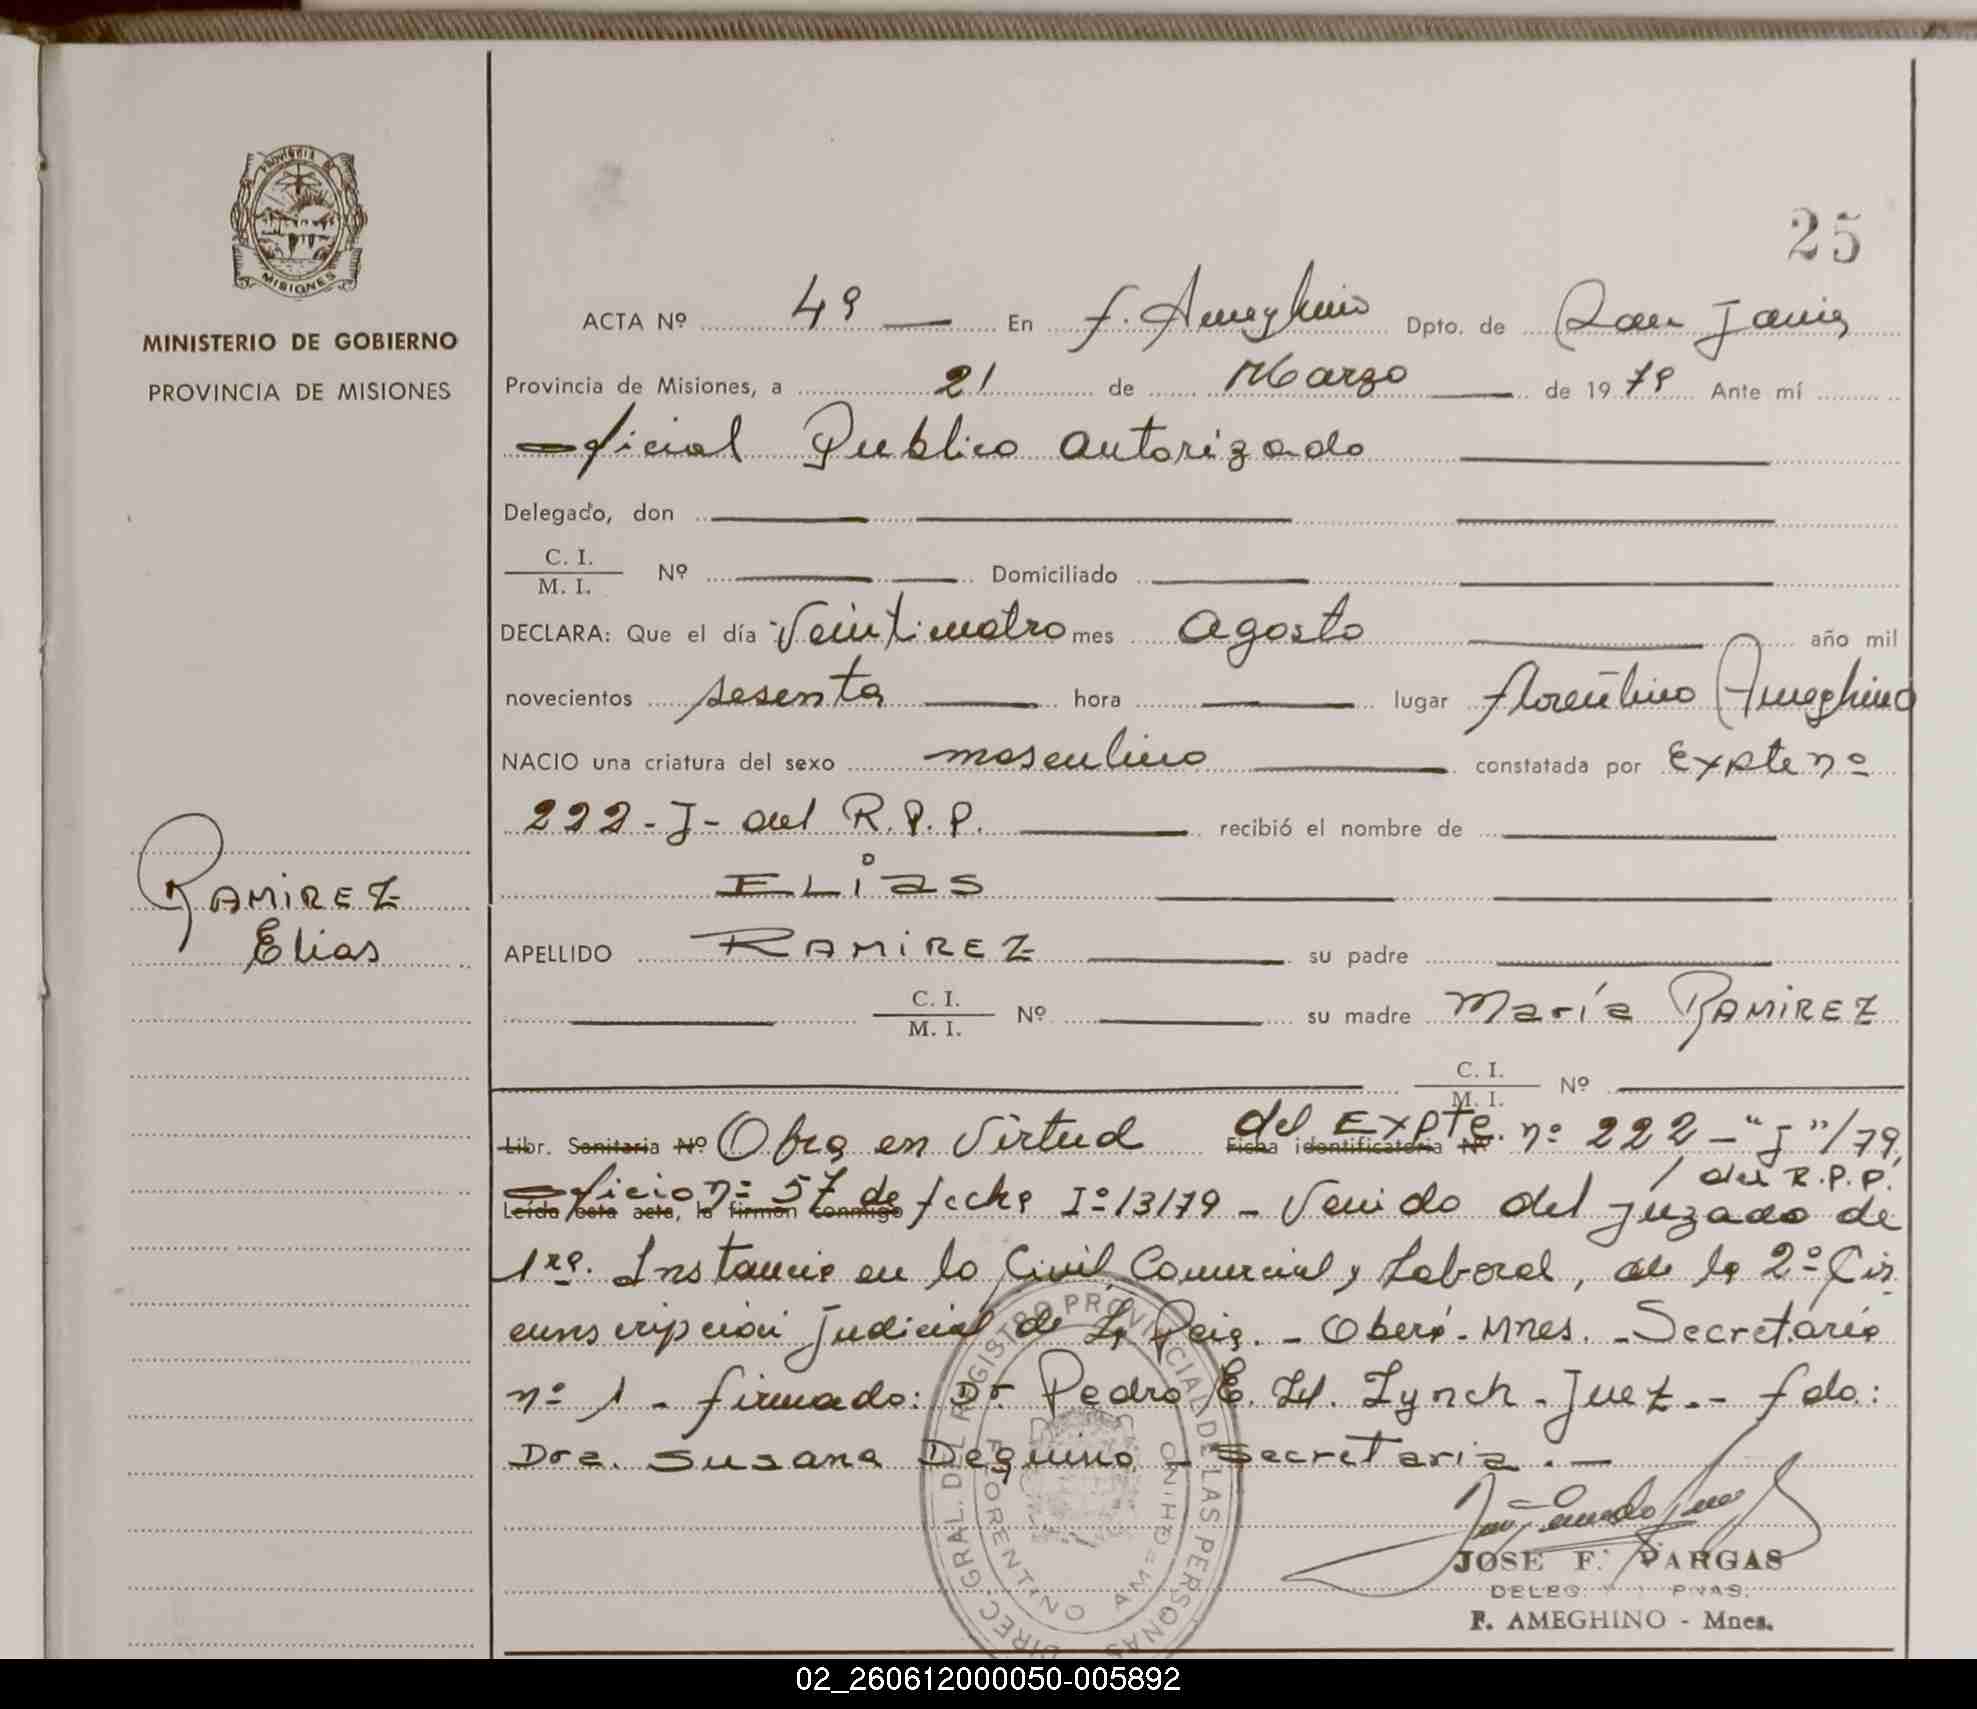 PROVINCIA DE
MISIONES
MINISTERIO DE GOBIERNO
PROVINCIA DE MISIONES
25
ACTA Nº 49 En F. Ameghino Dpto. de San Javier
Provincia de Misiones, a 21 de Marzo de 1979 Ante mí
oficial Publico autorizado
Delegado, don
C. I.
M. I. Nº Domiciliado
DECLARA: Que el día Veinticuatro mes agosto año mil
novecientos sesenta hora lugar florentino Ameghino
NACIO una criatura del sexo masculino constatada por Expte nº
222-J- del R.P.P. recibió el nombre de
ELias
RAMIREZ
Elias
APELLIDO RAMiREZ su padre
C. I.
M. I. Nº su madre María RAMIREZ
C. I.
M. I. Nº
Libr. Sanitaria Nº Obra en Virtud Ficha identificatoria Nº del Expte. nº 222-"J"/79,
/ del R.P.P.
Leída esta acta, la firman conmigo oficio nº 57 de fecha 1º/3/79 - Venido del juzado de
1ra. Instancia en lo Civil Comercial y Laboral, de la 2º Cir
cunscripcion Judicial de la Pcia. - Oberá - Mnes. - Secretaria
nº 1 - firmado: Dr. Pedro E. Lynch - Juez. - fdo:
Dra. Susana - Secretaria. -
DIREC. GRAL. DEL REGISTRO PROVINCIAL DE LAS PERSONAS
FLORENTINO AMEGHINO
JOSE F. VARGAS
F. AMEGHINO - Mnes.
02_260612000050-005892